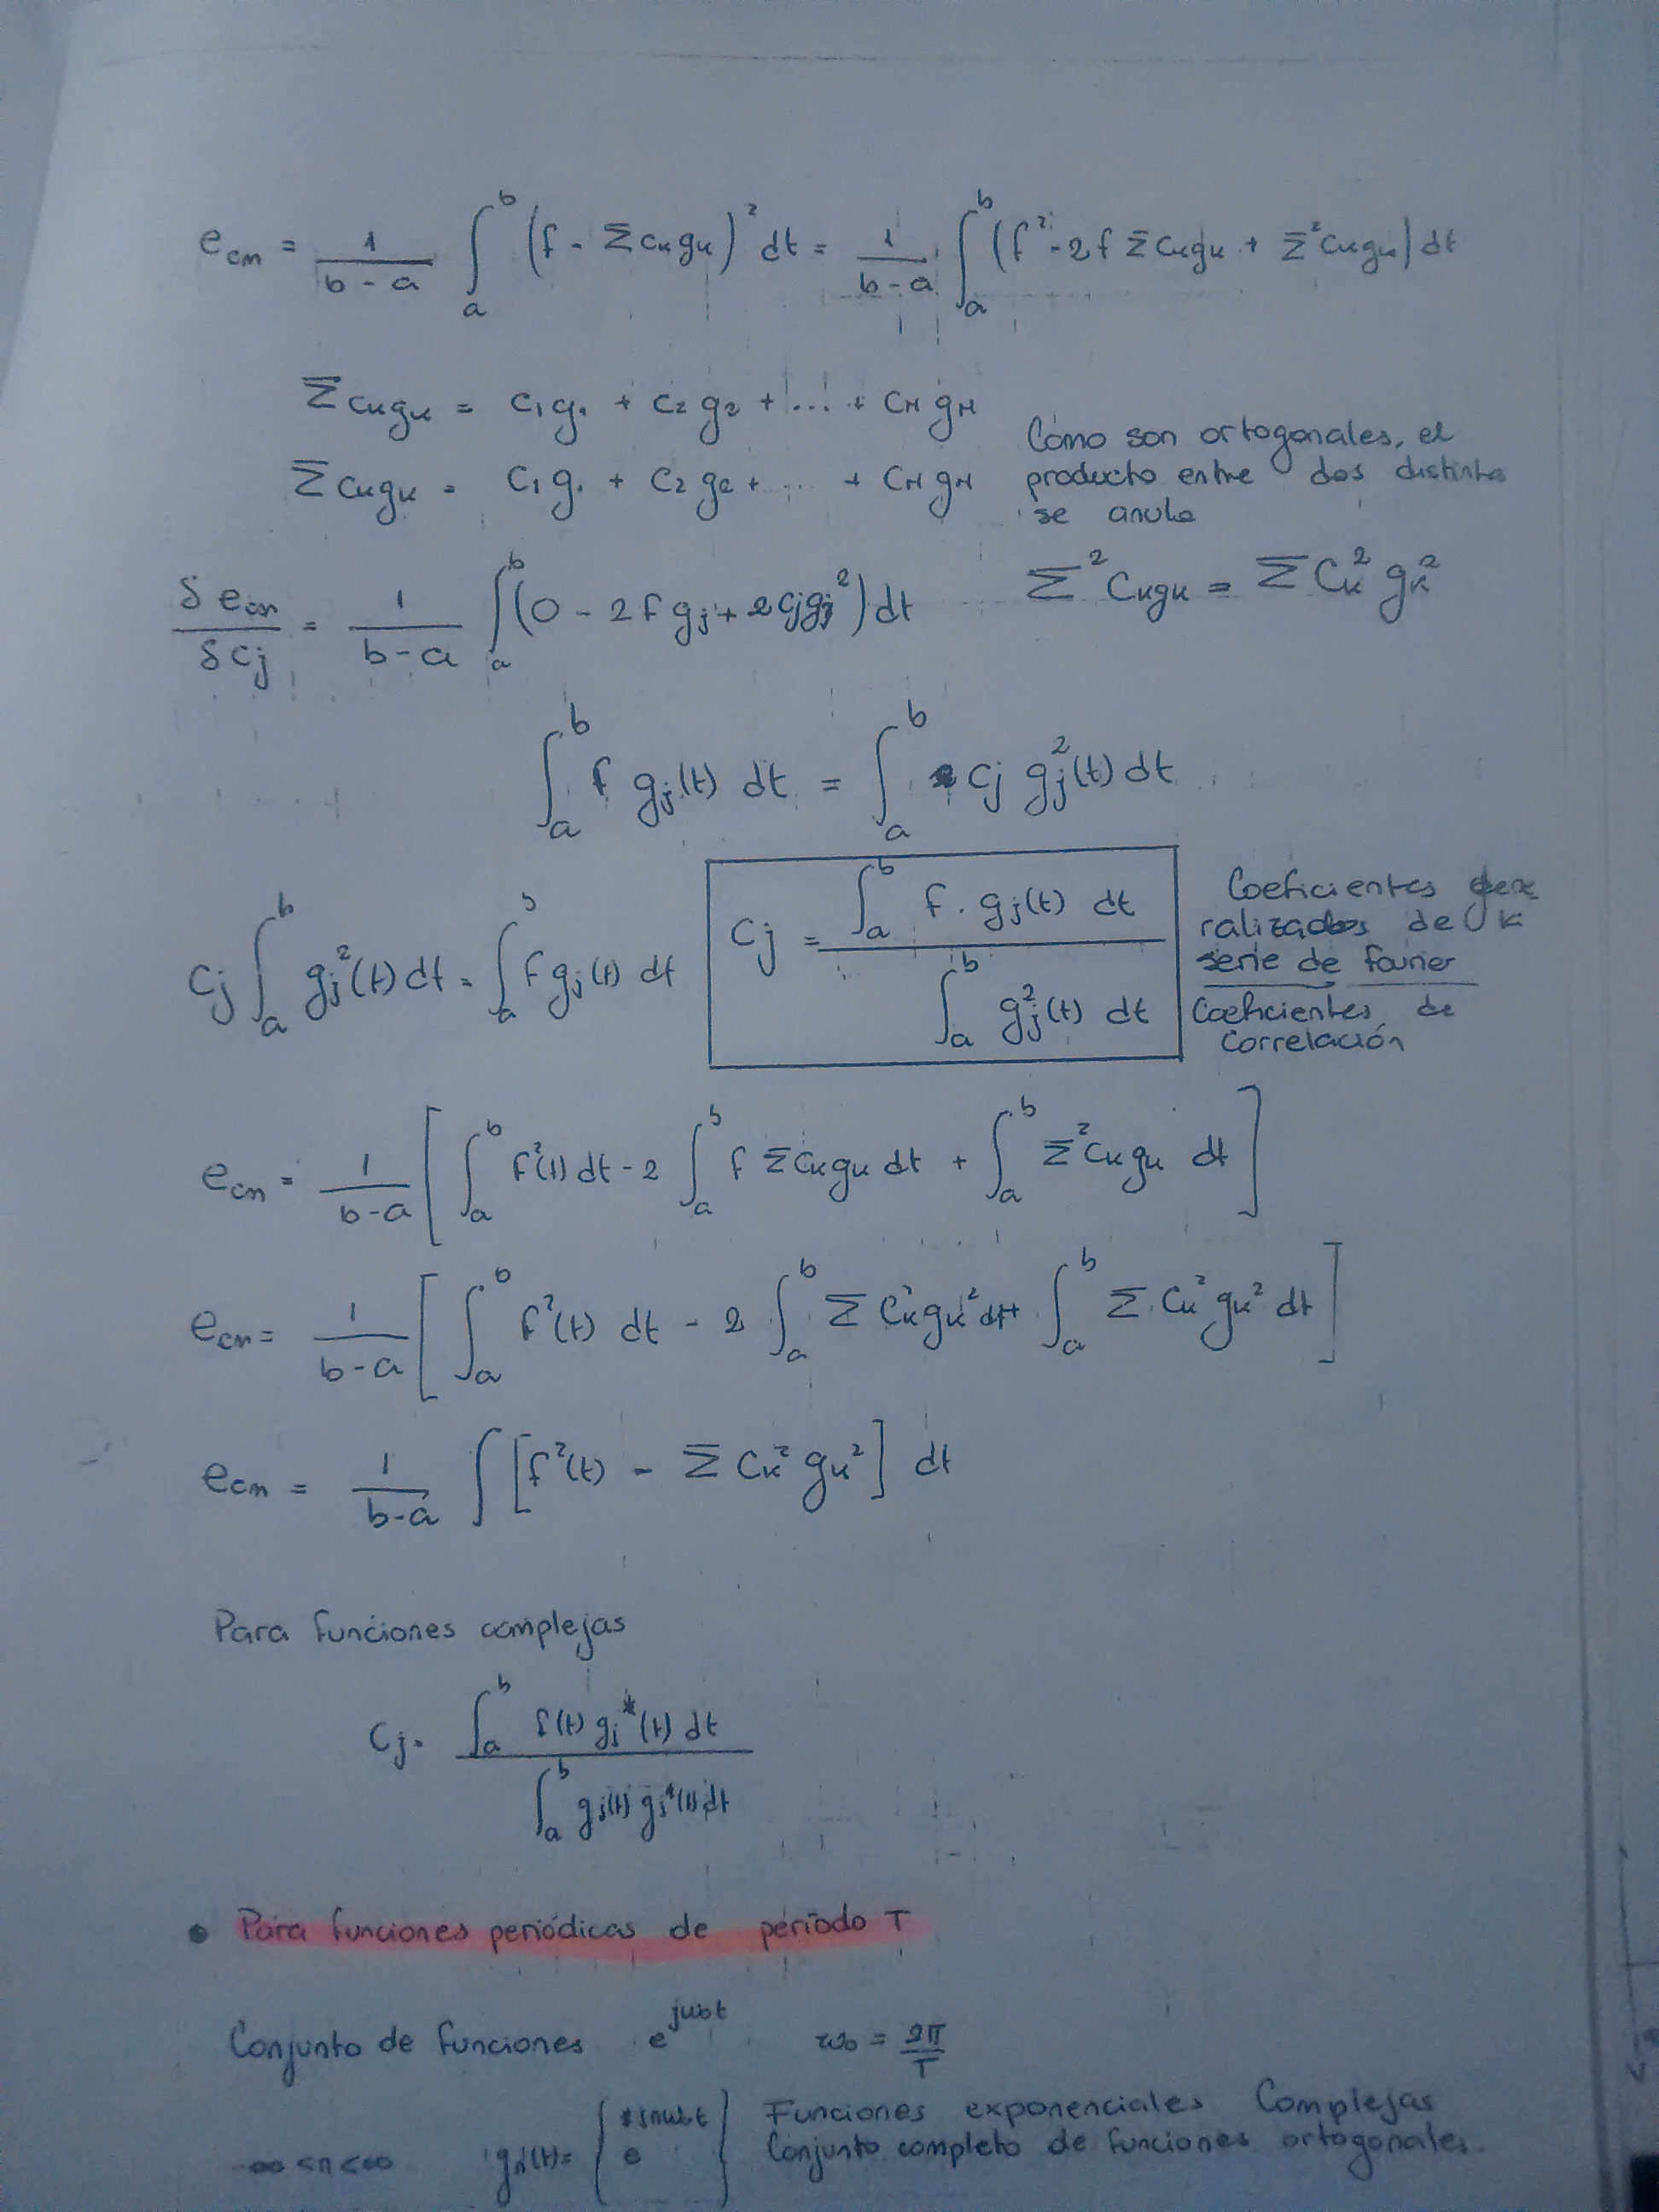 e_cm = 1/(b-a) ∫_a^b (f - Σ c_k g_k)² dt = 1/(b-a) ∫_a^b (f² - 2f Σ c_k g_k + Σ² c_k g_k) dt
Σ c_k g_k = c₁g₁ + c₂g₂ + ... + c_N g_N
Σ c_k g_k = c₁g₁ + c₂g₂ + ... + c_N g_N
Como son ortogonales, el
producto entre dos distintas
se anula
δe_cm/δc_j = 1/(b-a) ∫_a^b (0 - 2f g_j + 2c_j g_j²) dt
Σ² c_k g_k = Σ c_k² g_k²
∫_a^b f g_j(t) dt = ∫_a^b c_j g_j²(t) dt
c_j ∫_a^b g_j²(t) dt = ∫_a^b f g_j(t) dt
c_j = ∫_a^b f · g_j(t) dt / ∫_a^b g_j²(t) dt
Coeficientes gene
ralizados de la
serie de fourier
Coeficientes de
Correlación
e_cm = 1/(b-a) [∫_a^b f²(t) dt - 2 ∫_a^b f Σ c_k g_k dt + ∫_a^b Σ² c_k g_k dt]
e_cm = 1/(b-a) [∫_a^b f²(t) dt - 2 ∫_a^b Σ c_k² g_k² dt + ∫_a^b Σ c_k² g_k² dt]
e_cm = 1/(b-a) ∫ [f²(t) - Σ c_k² g_k²] dt
Para funciones complejas
c_j = ∫_a^b f(t) g_j*(t) dt / ∫_a^b g_j(t) g_j*(t) dt
• Para funciones periódicas de período T
Conjunto de funciones e^{jω₀t} ω₀ = 2π/T
-∞ < n < ∞ g_n(t) = { e^{±jnω₀t} } Funciones exponenciales Complejas
Conjunto completo de funciones ortogonales.